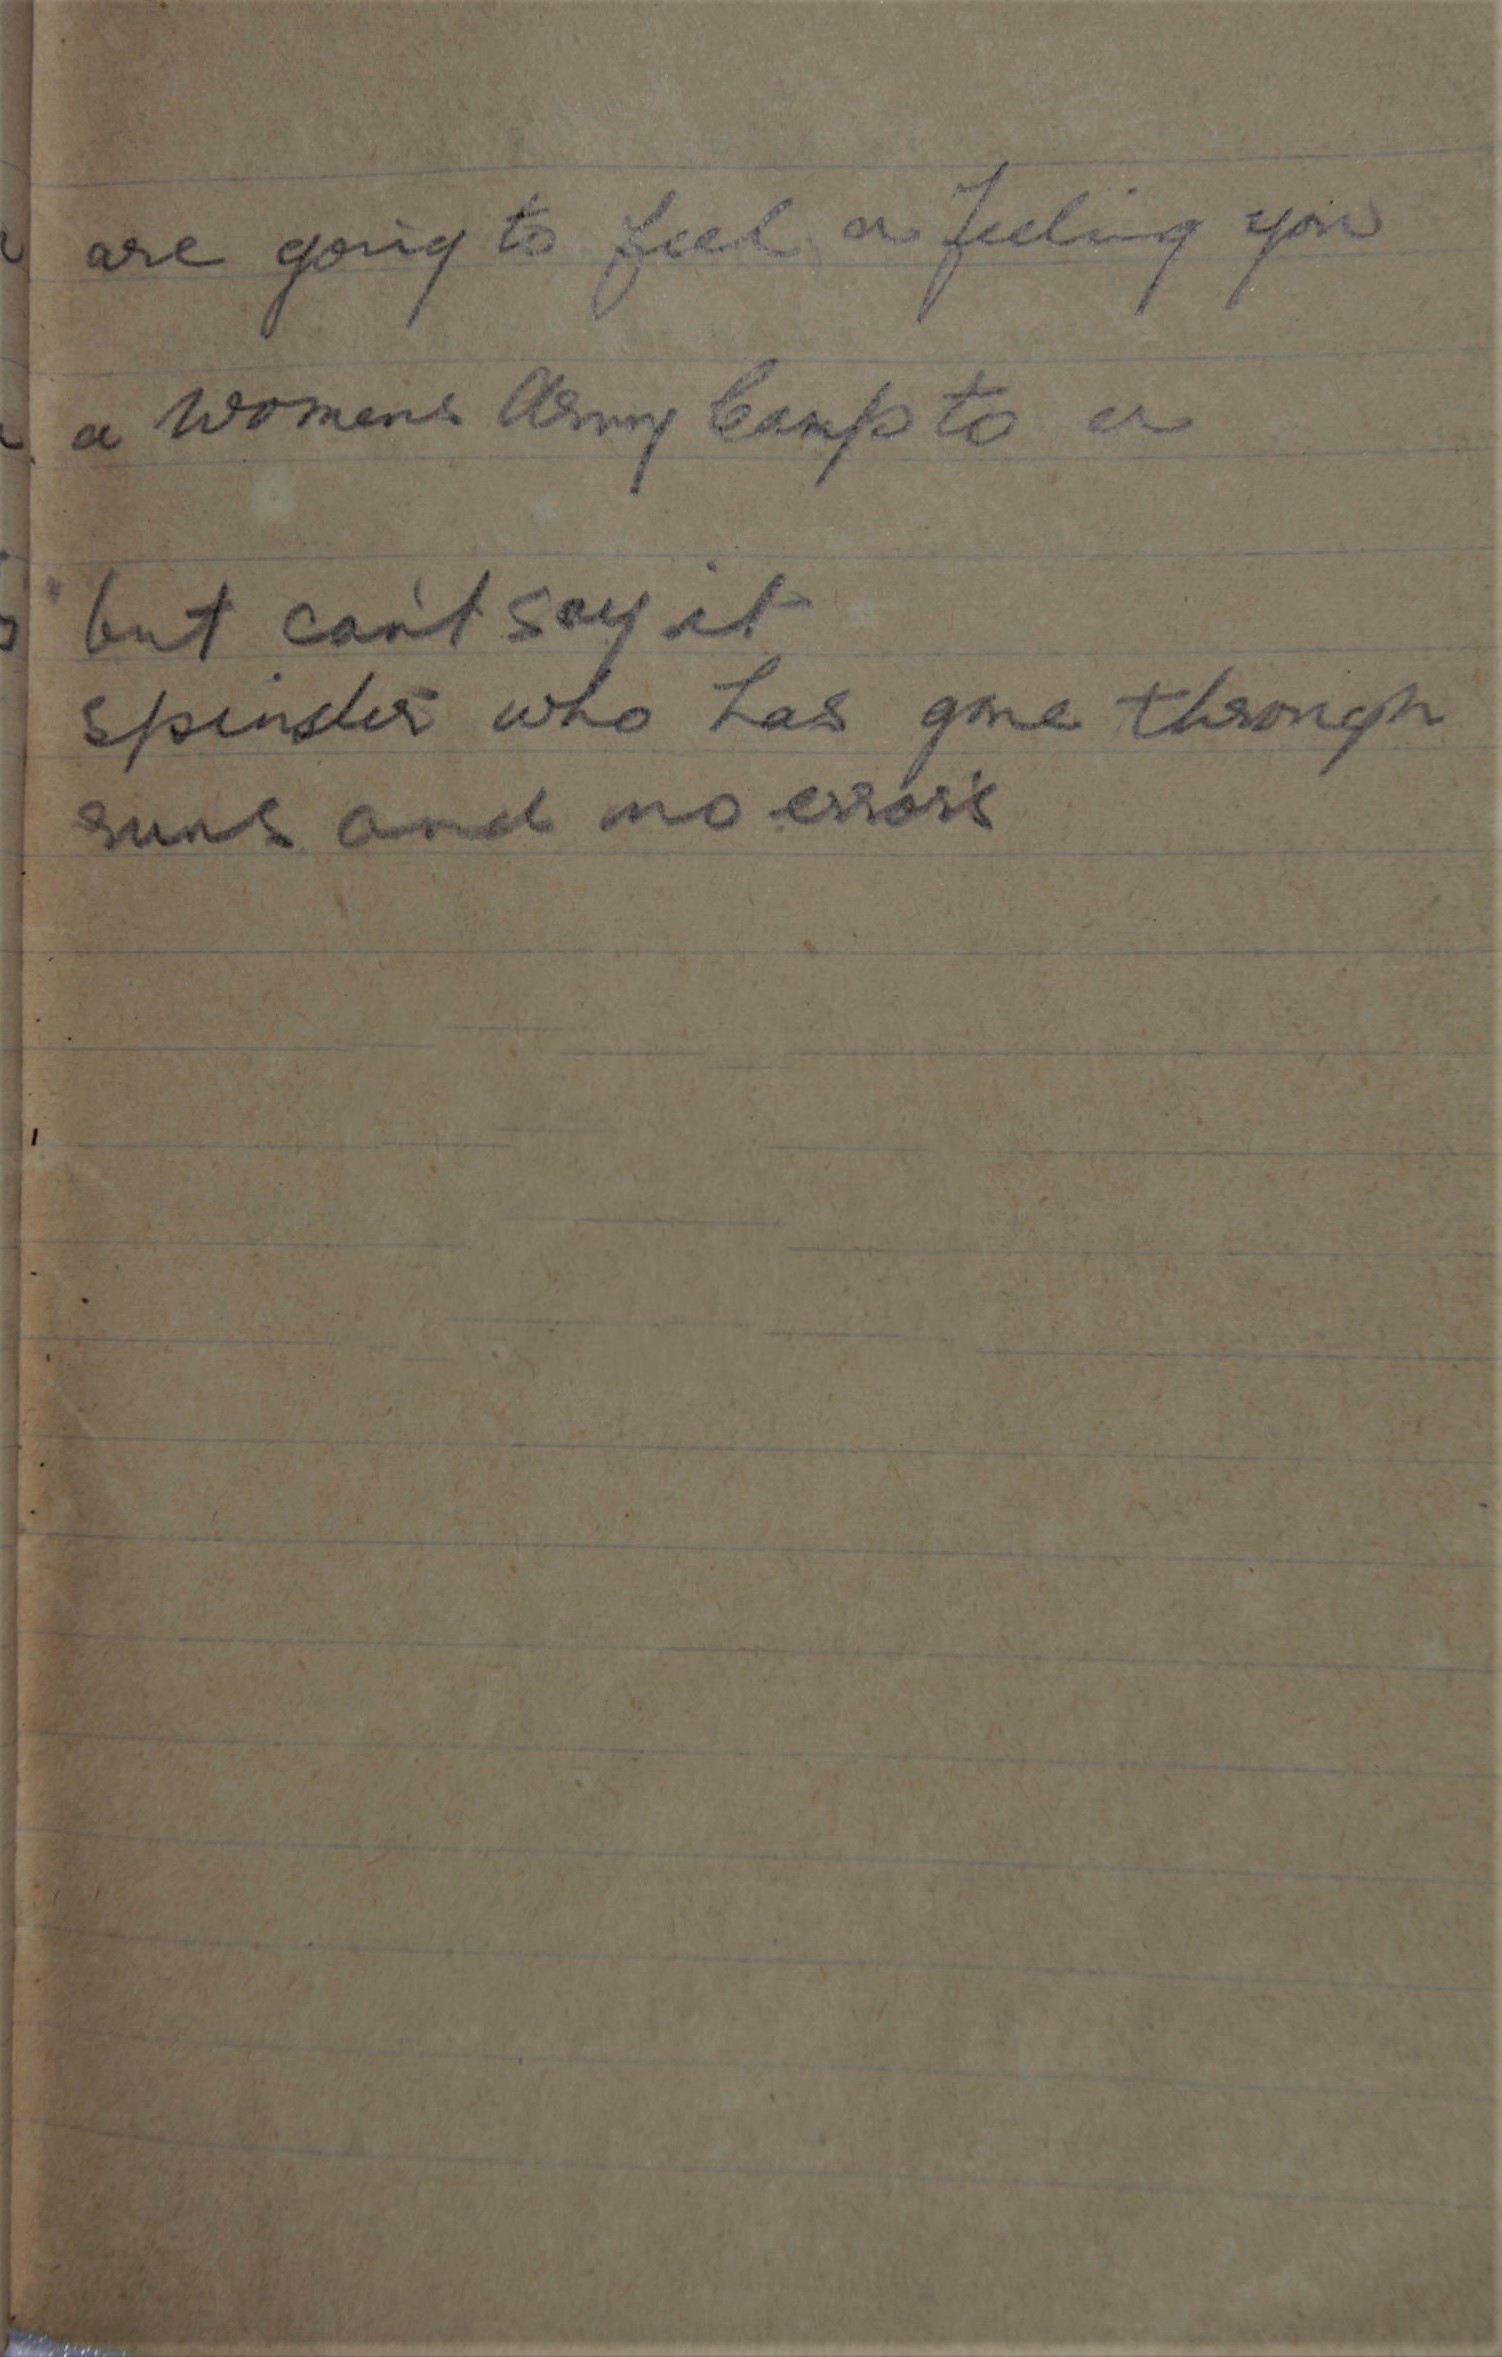 are going to feel a feeling you
a womens Army Camp to a
but can't say it
spinster who has gone through
runs and no errors